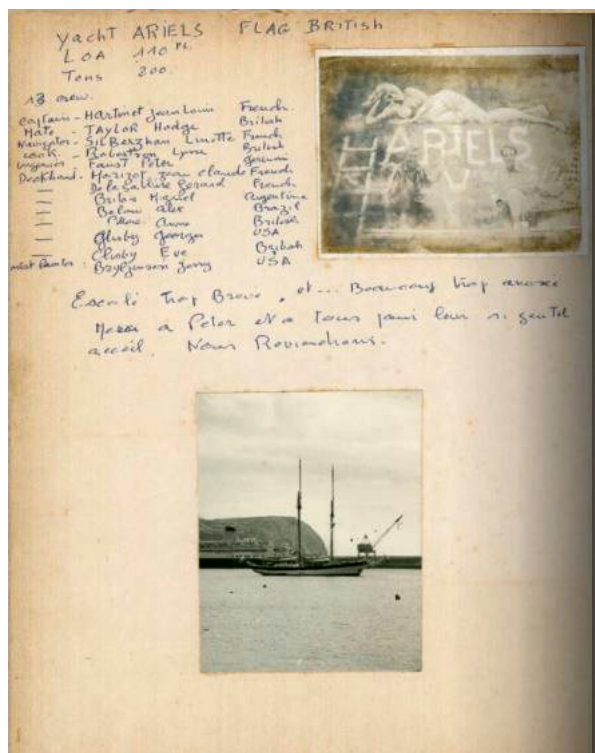 Yacht ARIELS FLAG BRITISH
LOA 110 Ft.
Tons 200.
13 crew.
Captain - Hartmet Jean Louis French.
Mate - TAYLOR Hodge British
Navigator - Silberzhan Linette French
Cook - Robertson Lynn British
Faust Peter German
Deckhand - Jean Claude French
Gerard French
Miguel Argentina
Alex Brazil
Anne British
Glusby Georges USA
Eve British
Painter Jerry USA
Escale Trop Breve, et... Beaucoup trop
Merci a Peter et a Tous pour leur si gentil
Nous Reviendrons.
ARIELS